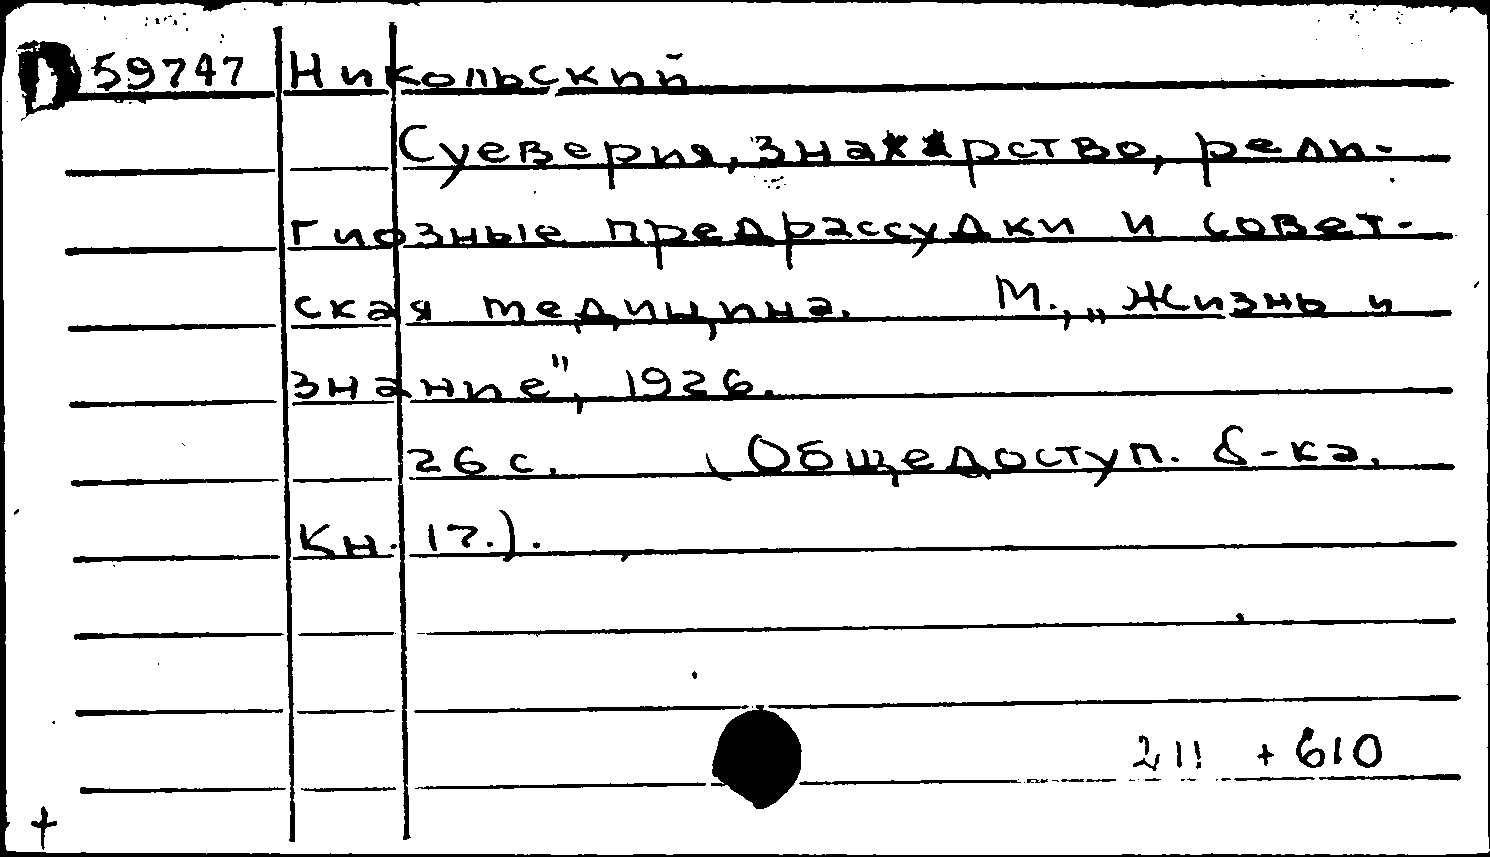 D 59747 Никольский
Суеверия, знахарство, рели-
гиозные предрассудки и совет-
ская медицина. М., „Жизнь и
знание", 1926.
26 с. (Общедоступ. б-ка.
Кн. 17.).
211 + 610
+